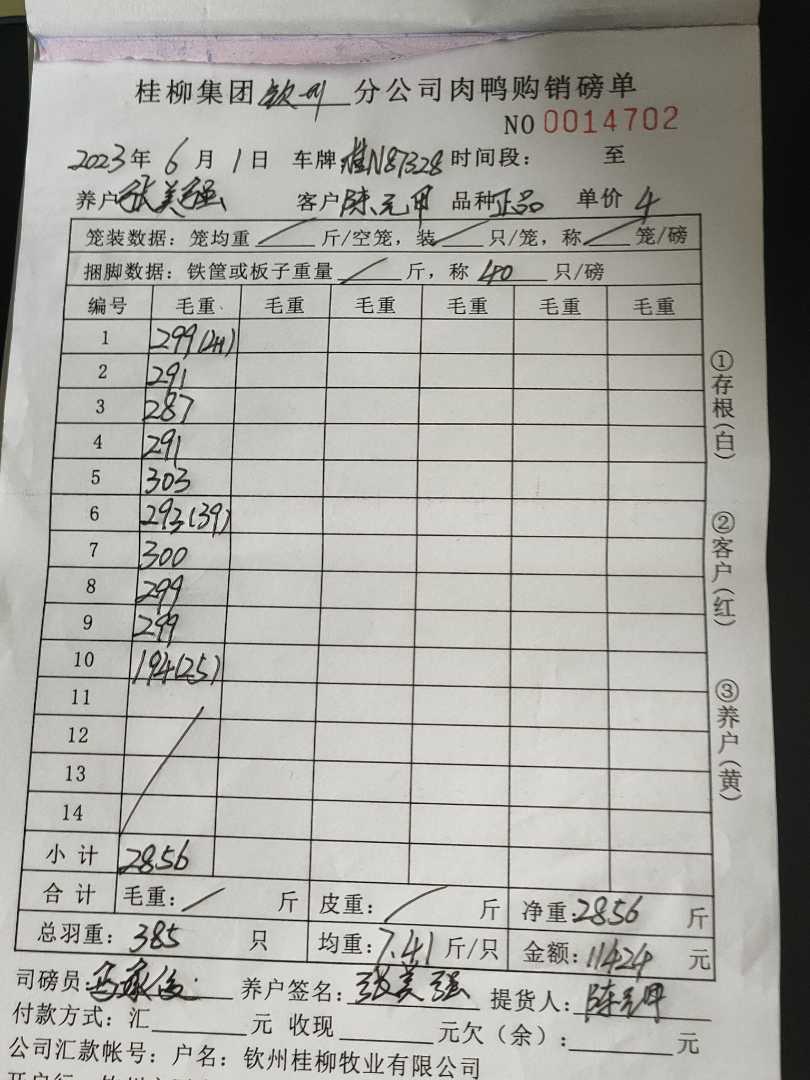 桂柳集团 钦州 分公司肉鸭购销磅单
NO 0014702
2023年 6 月 1 日 车牌 桂N87328 时间段： 至
养户 张美强 客户 陈元甲 品种 正品 单价 4
笼装数据：笼均重 / 斤/空笼，装 / 只/笼，称 / 笼/磅
捆脚数据：铁筐或板子重量 / 斤，称 40 只/磅
编号 毛重 毛重 毛重 毛重 毛重 毛重
1 299(41)
2 291
3 287
4 291
5 303
6 293(39)
7 300
8 299
9 299
10 194(25)
11
12
13
14
小计 2856
合计 毛重：/ 斤 皮重：/ 斤 净重：2856 斤
总羽重：385 只 均重：7.41 斤/只 金额：11424 元
司磅员： 养户签名：张美强 提货人：陈元甲
付款方式：汇 元 收现 元欠（余）： 元
公司汇款帐号：户名：钦州桂柳牧业有限公司
①存根（白）
②客户（红）
③养户（黄）